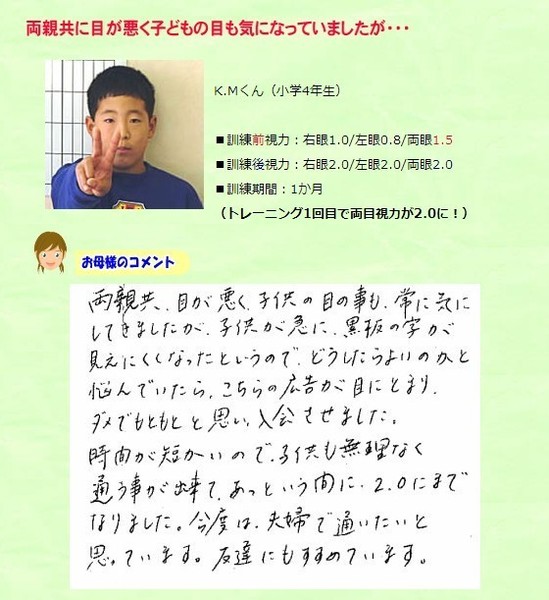 両親共に目が悪く子どもの目も気になっていましたが・・・
K.Mくん（小学4年生）
■訓練前視力：右眼1.0/左眼0.8/両眼1.5
■訓練後視力：右眼2.0/左眼2.0/両眼2.0
■訓練期間：1か月
（トレーニング1回目で両目視力が2.0に！）
お母様のコメント
両親共、目が悪く、子供の目の事も、常に気に
してきましたが、子供が急に、黒板の字が
見えにくくなったというので、どうしたらよいのかと
悩んでいたら、こちらの広告が目にとまり、
ダメでもともとと思い、入会させました。
時間が短かいので、子供も無理なく
通う事が出来て、あっという間に、2.0にまで
なりました。今度は、夫婦で通いたいと
思っています。友達にもすすめています。